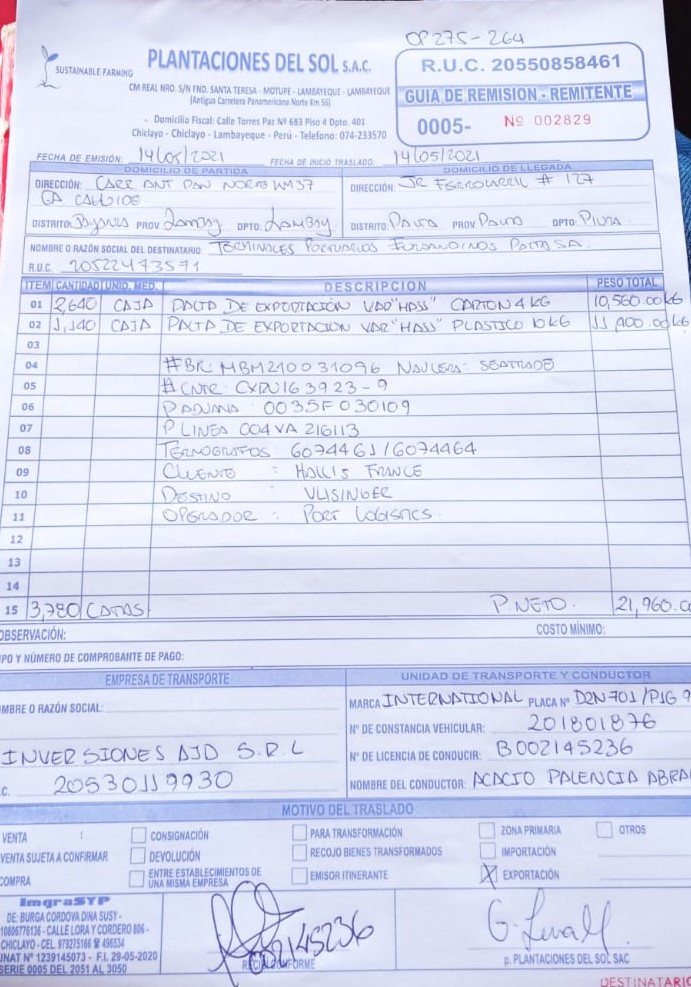 OP 275-264
SUSTAINABLE FARMING
PLANTACIONES DEL SOL S.A.C.
CM REAL NRO. S/N FND. SANTA TERESA - MOTUPE - LAMBAYEQUE - LAMBAYEQUE
(Antigua Carretera Panamericana Norte Km 56)
- Domicilio Fiscal: Calle Torres Paz Nº 683 Piso 4 Dpto. 401
Chiclayo - Chiclayo - Lambayeque - Perú - Telefono: 074-233570
R.U.C. 20550858461
GUIA DE REMISION - REMITENTE
0005- Nº 002829
FECHA DE EMISIÓN: 14/05/2021 FECHA DE INICIO TRASLADO: 14/05/2021
DOMICILIO DE PARTIDA DOMICILIO DE LLEGADA
DIRECCIÓN: CARR ANT PAN NORTE KM37 DIRECCIÓN: JR FERROCARRIL # 127
DISTRITO: PROV DPTO: DISTRITO: PAITA PROV PAITA DPTO: PIURA
NOMBRE O RAZÓN SOCIAL DEL DESTINATARIO: TERMINALES PORTUARIOS EUROANDINOS PAITA SA.
R.U.C. 20522473571
ITEM CANTIDAD UNID. MED. DESCRIPCION PESO TOTAL
01 2,640 CAJA PALTA DE EXPORTACIÓN VAR "HASS" CARTON 4 KG 10,560.00 KG
02 1,140 CAJA PALTA DE EXPORTACION VAR "HASS" PLASTICO 10 KG 11,400.00 KG
03
04 #BK MBM210031096 NAVIERA: SEATRADE
05 # CNTR: CXRU163923-9
06 P ADUANA: 0035F030109
07 P LINEA 004VA 216113
08 TERMOGRAFOS 6074461/6074464
09 CLIENTE : HALLS FRANCE
10 DESTINO : VLISINGER
11 OPERADOR : PORT LOGISTICS.
12
13
14
15 3,780 CAJAS P. NETO. 21,960.0
OBSERVACIÓN: COSTO MÍNIMO:
PO Y NÚMERO DE COMPROBANTE DE PAGO:
EMPRESA DE TRANSPORTE UNIDAD DE TRANSPORTE Y CONDUCTOR
MBRE O RAZÓN SOCIAL: MARCA INTERNATIONAL PLACA Nº D2N701/P1G 9
Nº DE CONSTANCIA VEHICULAR: 201801876
INVERSIONES AJD S.R.L Nº DE LICENCIA DE CONDUCIR: B002145236
C. 20530119930 NOMBRE DEL CONDUCTOR: ACACIO PALENCIA ABRA
MOTIVO DEL TRASLADO
VENTA CONSIGNACIÓN PARA TRANSFORMACIÓN ZONA PRIMARIA OTROS
VENTA SUJETA A CONFIRMAR DEVOLUCIÓN RECOJO BIENES TRANSFORMADOS IMPORTACIÓN
COMPRA ENTRE ESTABLECIMIENTOS DE UNA MISMA EMPRESA EMISOR ITINERANTE X EXPORTACIÓN
ImgraSYP
DE: BURGA CORDOVA DINA SUSY -
10806776136 - CALLE LORA Y CORDERO 806 -
CHICLAYO - CEL. 979275166 ☎ 496534
UNAT Nº 1239145073 - F.I. 29-05-2020
SERIE 0005 DEL 2051 AL 3050
02145236
RECIBI CONFORME
p. PLANTACIONES DEL SOL SAC
DESTINATARIO